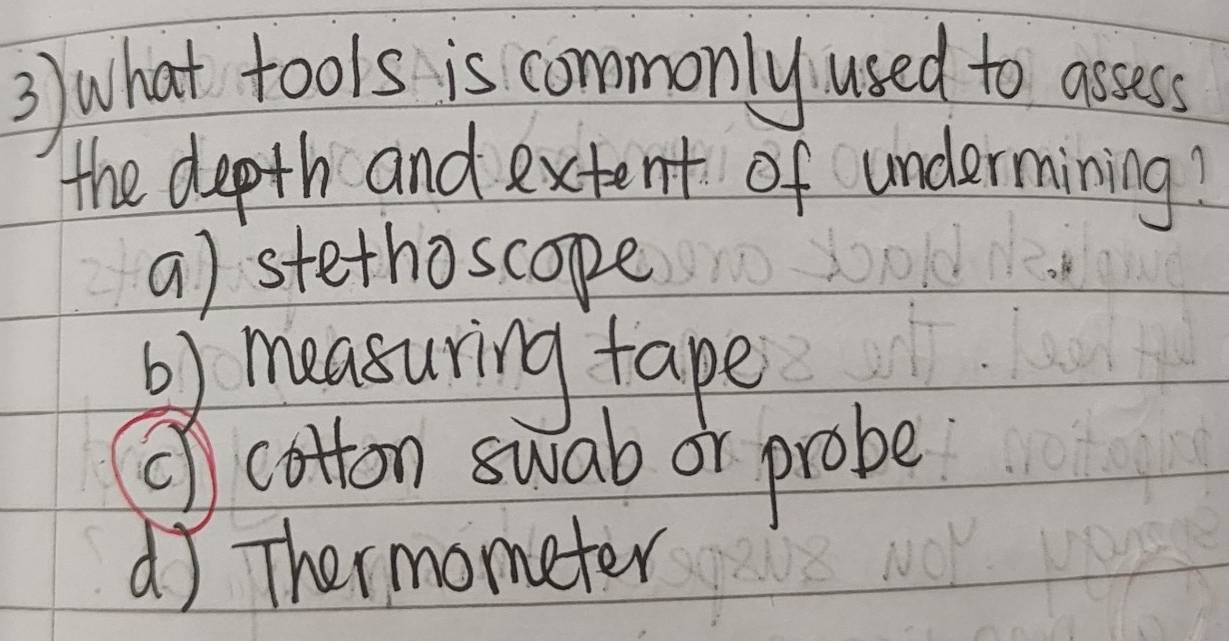 3) What tools is commonly used to assess
the depth and extent of undermining?
a) stethoscope
b) measuring tape
c) cotton swab or probe
d) Thermometer